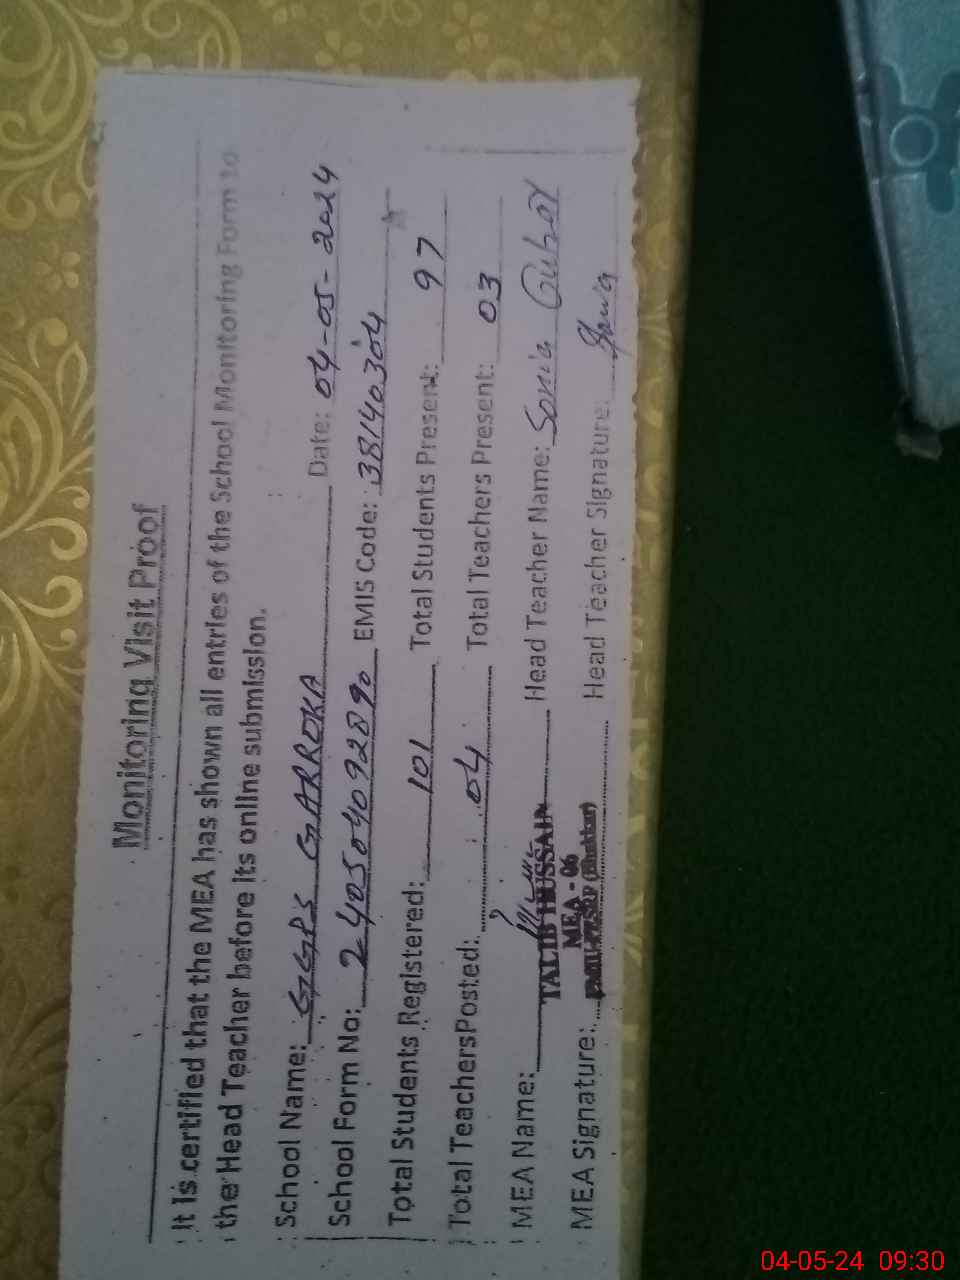 Monitoring Visit Proof
It is certified that the MEA has shown all entries of the School Monitoring Form to
the Head Teacher before its online submission.
School Name: GGPS GARROKA Date: 04-05-2024
School Form No: 240504092890 EMIS Code: 38140304
Total Students Registered: 101 Total Students Present: 97
Total TeachersPosted: 04 Total Teachers Present: 03
MEA Name: TALIB HUSSAIN Head Teacher Name: Sonia
MEA - 06
MEA Signature: Head Teacher Signature: Sonia
04-05-24 09:30